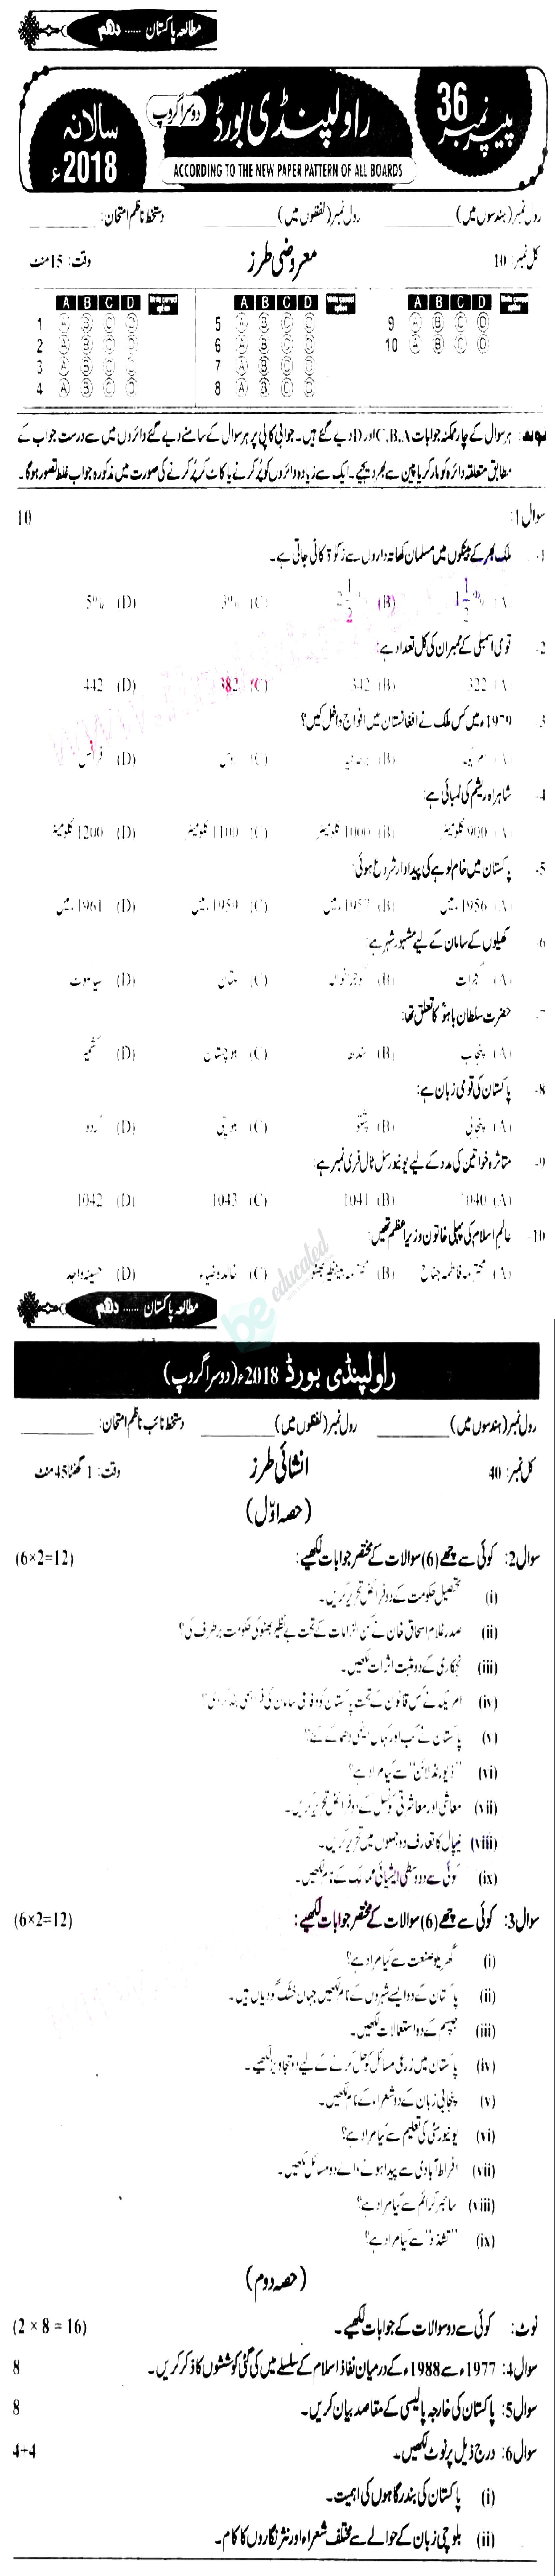 مطالعہ پاکستان ...... دہم
پیپر نمبر 36
راولپنڈی بورڈ
دوسرا گروپ
سالانہ 2018ء
ACCORDING TO THE NEW PAPER PATTERN OF ALL BOARDS
رول نمبر (ہندسوں میں) ________ رول نمبر (لفظوں میں) ________ دستخط ناظم امتحان: ________
کل نمبر: 10 معروضی طرز وقت: 15 منٹ
A B C D Write correct option A B C D Write correct option A B C D Write correct option
1 A B C D 5 A B C D 9 A B C D
2 A B C D 6 A B C D 10 A B C D
3 A B C D 7 A B C D
4 A B C D 8 A B C D
نوٹ: ہر سوال کے چار ممکنہ جوابات C,B,A اور D دیے گئے ہیں۔ جوابی کاپی پر ہر سوال کے سامنے دیے گئے دائروں میں سے درست جواب کے
مطابق متعلقہ دائرہ کو مارکر یا پین سے بھر دیجیے۔ ایک سے زیادہ دائروں کو پُر کرنے یا کاٹ کر پُر کرنے کی صورت میں مذکورہ جواب غلط تصور ہوگا۔
سوال 1: 10
1- ملک بھر کے بینکوں میں مسلمان کھاتہ داروں سے زکوٰۃ کاٹی جاتی ہے۔
(A) 1 1/2 % (B) 2 1/2 % (C) 3% (D) 5%
2- قومی اسمبلی کے ممبران کی کل تعداد ہے:
(A) 322 (B) 342 (C) 382 (D) 442
3- 1979ء میں کس ملک نے افغانستان میں افواج داخل کیں؟
(A) امریکہ (B) برطانیہ (C) روس (D) فرانس
4- شاہراہ ریشم کی لمبائی ہے:
(A) 900 کلومیٹر (B) 1000 کلومیٹر (C) 1100 کلومیٹر (D) 1200 کلومیٹر
5- پاکستان میں خام لوہے کی پیداوار شروع ہوئی:
(A) 1956ء میں (B) 1957ء میں (C) 1959ء میں (D) 1961ء میں
6- کھیلوں کے سامان کے لیے مشہور شہر ہے:
(A) گجرات (B) گوجرانوالہ (C) ملتان (D) سیالکوٹ
7- حضرت سلطان باہوؒ کا تعلق تھا:
(A) پنجاب (B) سندھ (C) بلوچستان (D) کشمیر
8- پاکستان کی قومی زبان ہے:
(A) پنجابی (B) پشتو (C) بلوچی (D) اُردو
9- متاثرہ خواتین کی مدد کے لیے یونیورسل ٹال فری نمبر ہے:
(A) 1040 (B) 1041 (C) 1043 (D) 1042
10- عالمِ اسلام کی پہلی خاتون وزیر اعظم تھیں:
(A) محترمہ فاطمہ جناح (B) محترمہ بینظیر بھٹو (C) خالدہ ضیاء (D) حسینہ واجد
be educated
مطالعہ پاکستان ...... دہم
راولپنڈی بورڈ 2018ء (دوسرا گروپ)
رول نمبر (ہندسوں میں) ________ رول نمبر (لفظوں میں) ________ دستخط نائب ناظم امتحان: ________
کل نمبر: 40 انشائی طرز وقت: 1 گھنٹا 45 منٹ
(حصہ اوّل)
سوال 2: کوئی سے چھے (6) سوالات کے مختصر جوابات لکھیے: (6×2=12)
(i) تحصیل حکومت کے دو فرائض تحریر کریں۔
(ii) صدر غلام اسحاق خان نے کن الزامات کے تحت بے نظیر بھٹو کی حکومت برطرف کی؟
(iii) نجکاری کے دو مثبت اثرات لکھیں۔
(iv) امریکہ نے کس قانون کے تحت پاکستان کو دفاعی سامان کی فراہمی بند کر دی؟
(v) پاکستان نے کب اور کہاں ایٹمی دھماکے کیے؟
(vi) "ڈیورنڈ لائن" سے کیا مراد ہے؟
(vii) معاشی اور معاشرتی کونسل کے دو فرائض تحریر کریں۔
(viii) نیپال کا تعارف دو جملوں میں تحریر کریں۔
(ix) کوئی سے دو وسطی ایشیائی ممالک کے نام لکھیں۔
سوال 3: کوئی سے چھے (6) سوالات کے مختصر جوابات لکھیے: (6×2=12)
(i) گھریلو صنعت سے کیا مراد ہے؟
(ii) پاکستان کے دو ایسے شہروں کے نام لکھیں جہاں خشک گودیاں ہیں۔
(iii) جپسم کے دو استعمالات لکھیں۔
(iv) پاکستان میں زرعی مسائل کو حل کرنے کے لیے دو تجاویز لکھیے۔
(v) پنجابی زبان کے دو شعراء کے نام لکھیں۔
(vi) یونیورسٹی کی تعلیم سے کیا مراد ہے؟
(vii) افراطِ آبادی سے پیدا ہونے والے دو مسائل لکھیں۔
(viii) سائبر کرائم سے کیا مراد ہے؟
(ix) "تشدد" سے کیا مراد ہے؟
(حصہ دوم)
نوٹ: کوئی سے دو سوالات کے جوابات لکھیے۔ (2 × 8 = 16)
سوال 4: 1977ء سے 1988ء کے درمیان نفاذ اسلام کے سلسلے میں کی گئی کوششوں کا ذکر کریں۔ 8
سوال 5: پاکستان کی خارجہ پالیسی کے مقاصد بیان کریں۔ 8
سوال 6: درج ذیل پر نوٹ لکھیں۔ 4+4
(i) پاکستان کی بندرگاہوں کی اہمیت۔
(ii) بلوچی زبان کے حوالے سے مختلف شعراء اور نثر نگاروں کا کام۔